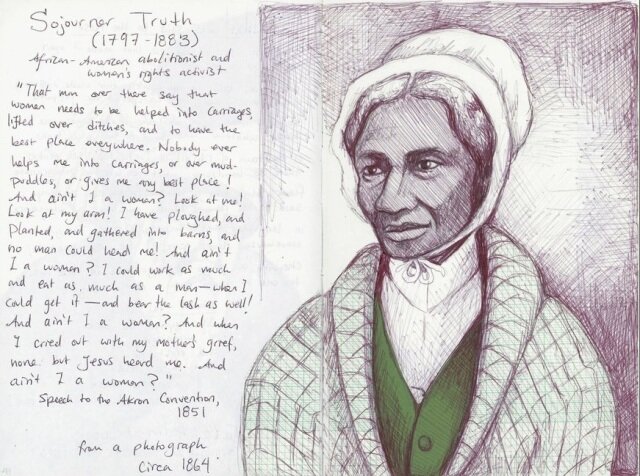 Sojourner Truth
(1797-1883)
African-American abolitionist and
women's rights activist
"That man over there say that
women needs to be helped into carriages,
lifted over ditches, and to have the
best place everywhere. Nobody ever
helps me into carriages, or over mud-
puddles, or gives me any best place!
And ain't I a woman? Look at me!
Look at my arm! I have ploughed, and
planted, and gathered into barns, and
no man could head me! And ain't
I a woman? I could work as much
and eat as much as a man—when I
could get it—and bear the lash as well!
And ain't I a woman? And when
I cried out with my mother's grief,
none but Jesus heard me. And
ain't I a woman?"
Speech to the Akron Convention,
1851
from a photograph
Circa 1864